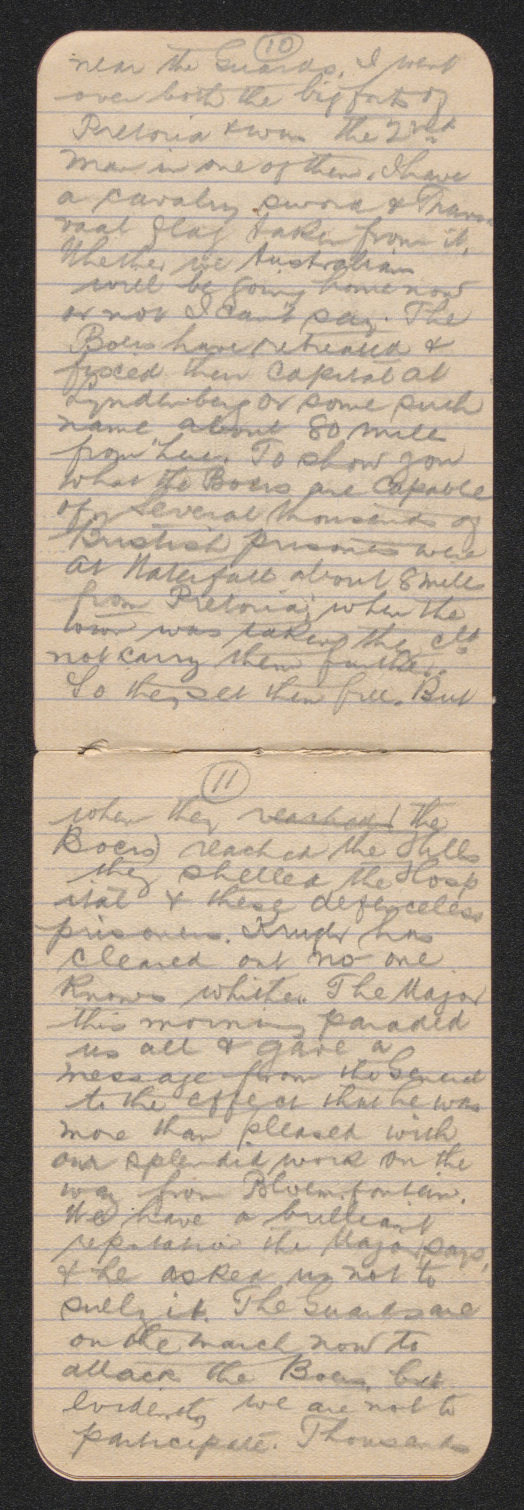 10
near the Guards. I went
over both the big forts of
Pretoria & was the 2nd
man in one of them. I have
a cavalry sword & Trans-
vaal flag taken from it.
Whether we Australian
will be going home now
or not I can't say. The
Boers have retreated &
fixed their capital at
Lyndenberg or some such
name about 80 miles
from here. To show you
what the Boers are capable
of, several thousands of
British prisoners were
at Waterfall about 8 miles
from Pretoria; when the
town was taken they cld
not carry them further.
So they set them free. But
11
when they reached (the
Boers) reached the Hills
they shelled the Hosp
ital & these defenceless
prisoners. Kruger has
cleared out no one
knows whither. The Major
this morning paraded
us all & gave a
message from the General
to the effect that he was
more than pleased with
our splendid work on the
way from Bloemfontein.
We have a brilliant
reputation the Major says,
& he asked us not to
sully it. The Guards are
on the march now to
attack the Boers, but
evidently we are not to
participate. Thousands